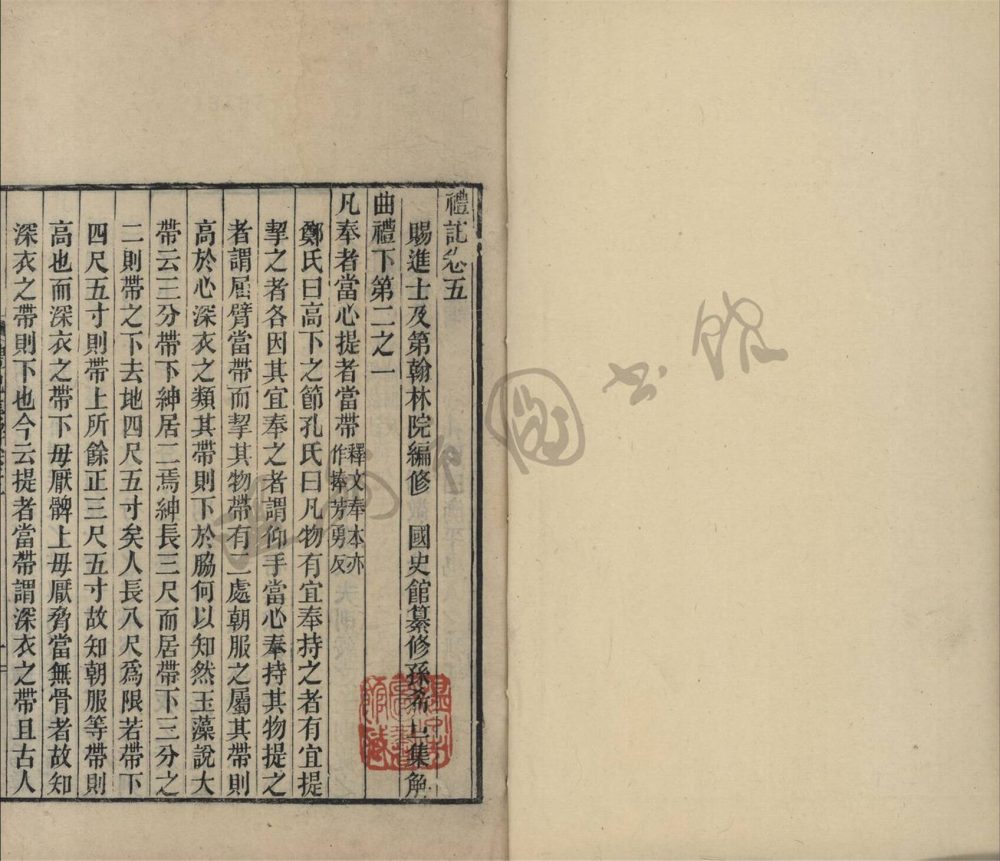 禮記卷五
賜進士及第翰林院編修　國史館纂修孫希旦集解
曲禮下第二之一
凡奉者當心提者當帶釋文奉本亦作捧芳勇反
鄭氏曰高下之節孔氏曰凡物有宜奉持之者有宜提
挈之者各因其宜奉之者謂仰手當心奉持其物提之
者謂屈臂當帶而挈其物帶有二處朝服之屬其帶則
高於心深衣之類其帶則下於脇何以知然玉藻說大
帶云三分帶下紳居二焉紳長三尺而居帶下三分之
二則帶之下去地四尺五寸矣人長八尺為限若帶下
四尺五寸則帶上所餘正三尺五寸故知朝服等帶則
高也而深衣之帶下毋厭髀上毋厭脅當無骨者故知
深衣之帶則下也今云提者當帶謂深衣之帶且古人
圖書館